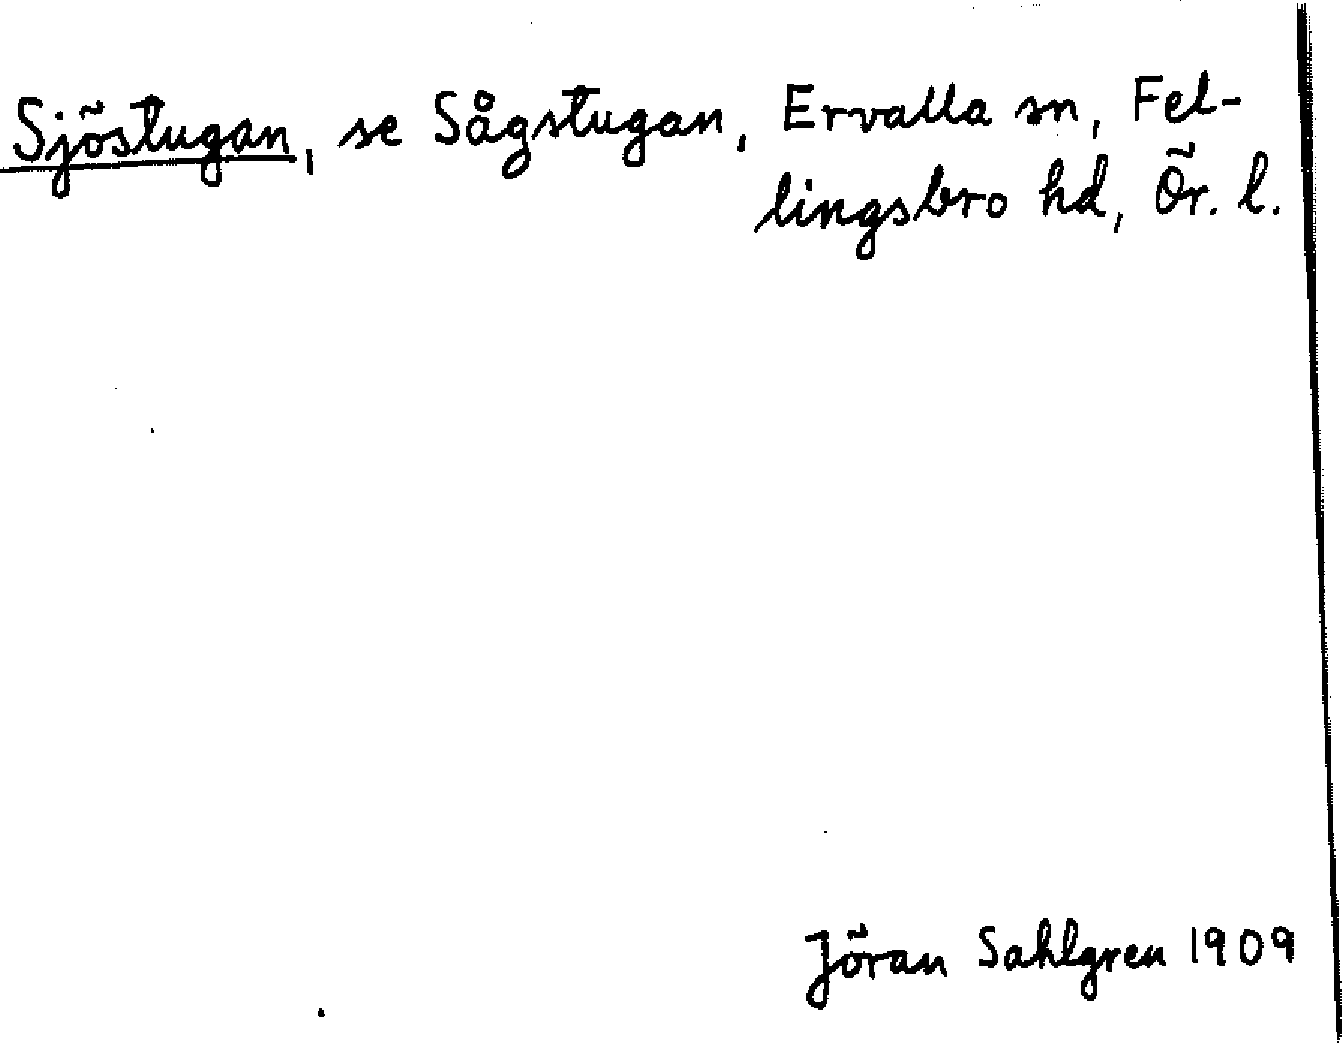 Sjöstugan, se Sågstugan, Ervalla sn, Fel-
lingsbro hd, Ör. l.
Jöran Sahlgren 1909